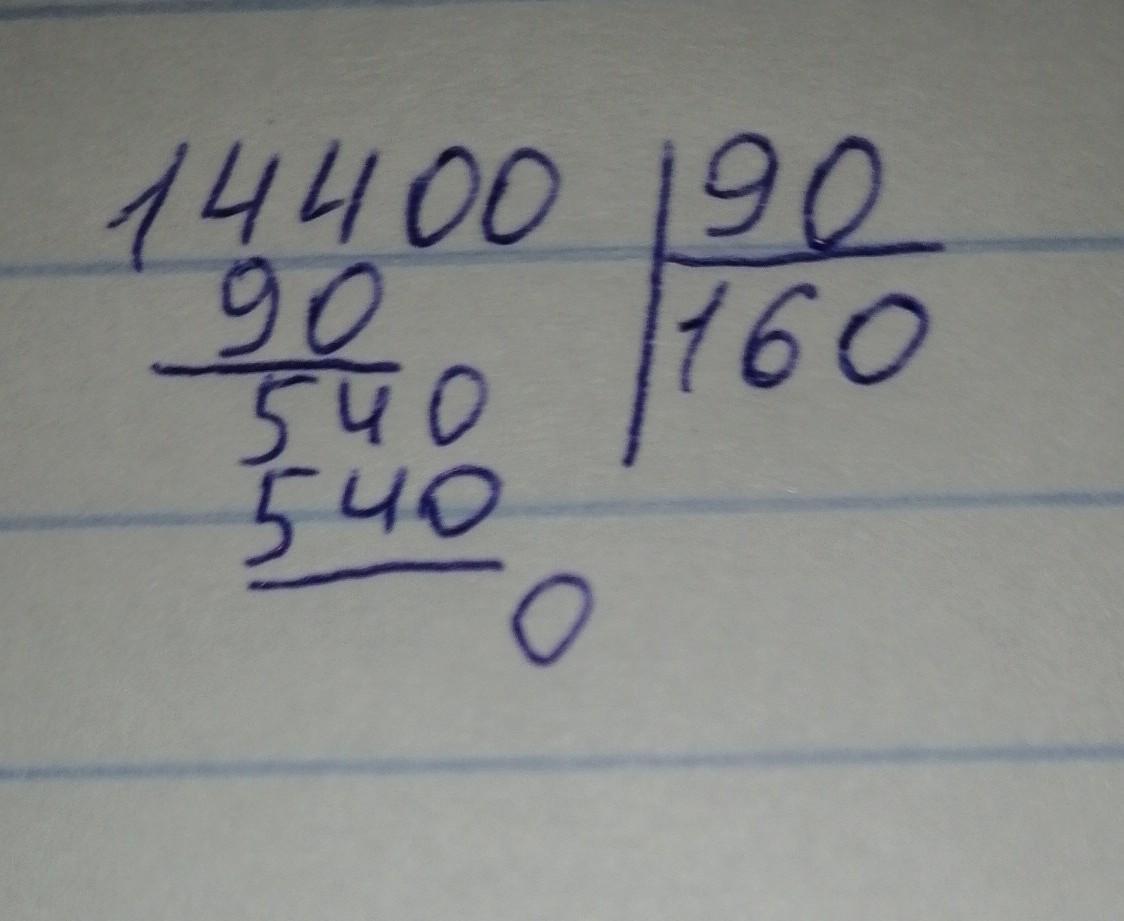 14400 90
90 160
540
540
0